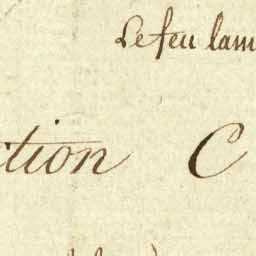 Le feu lam
ction C